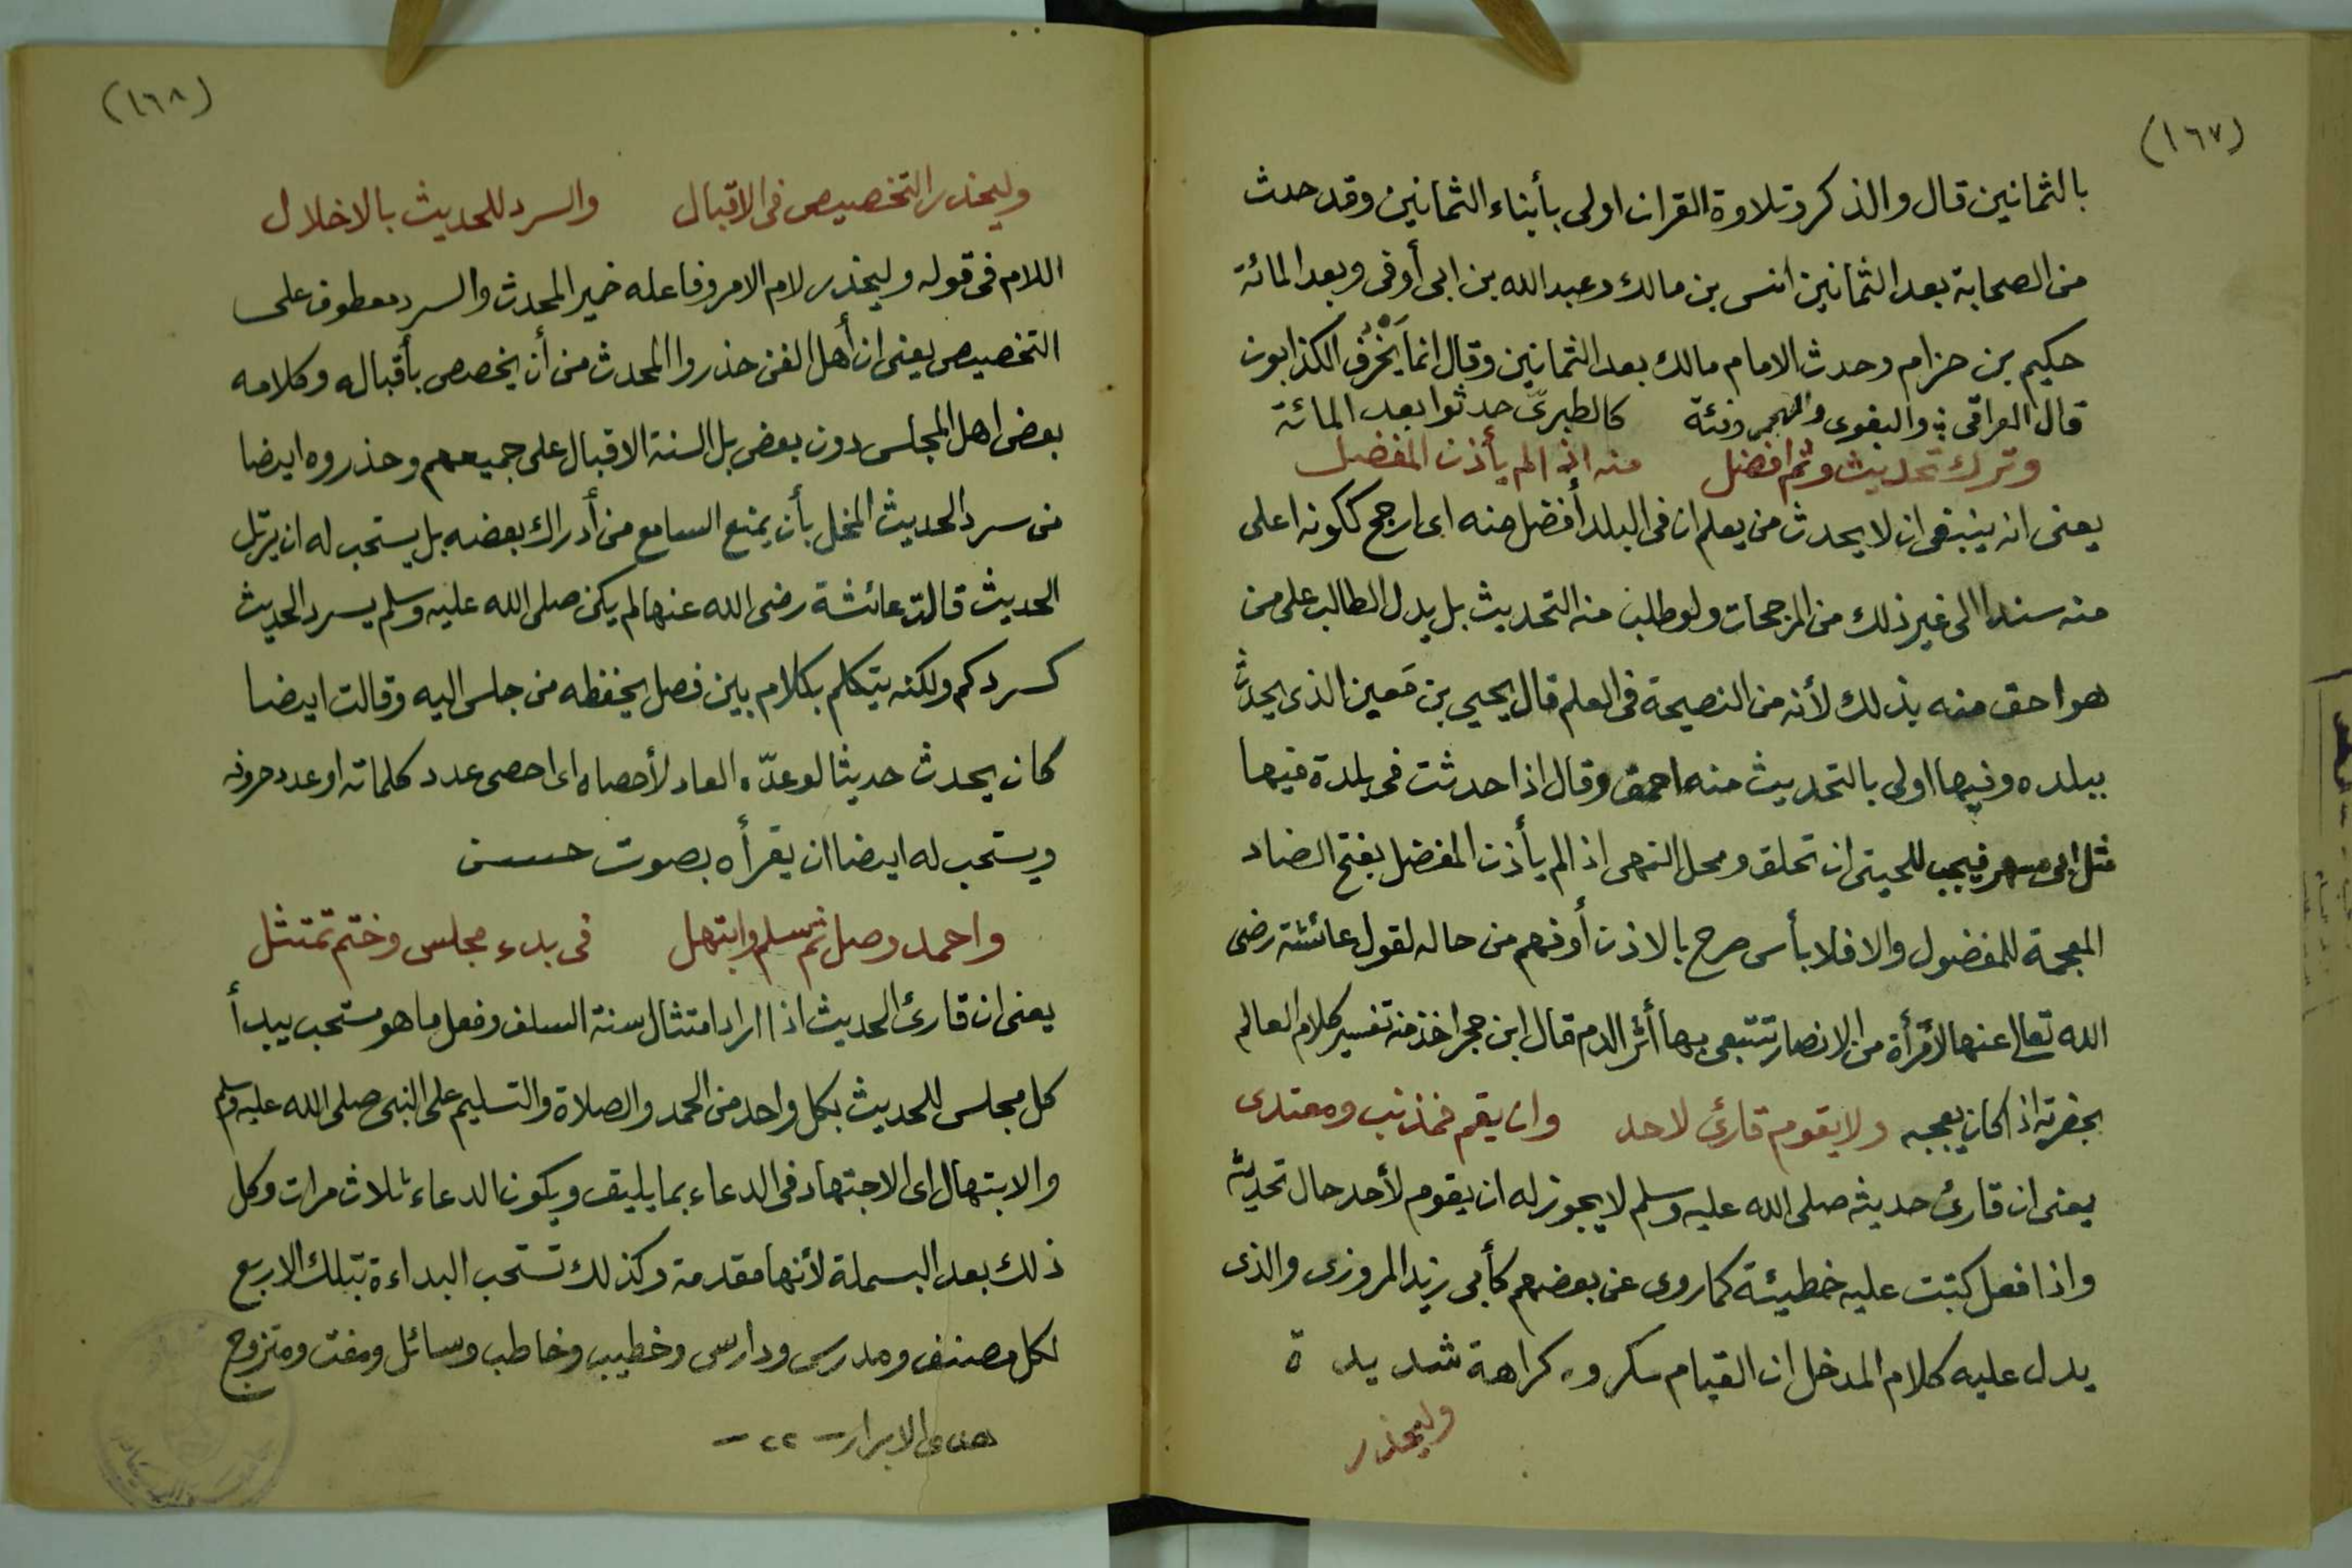 (١٦٧)
بالثمانين قال والذكر وتلاوة القران اولى بأبناء الثمانين وقد حدث
من الصحابة بعد الثمانين انس بن مالك وعبد الله بن ابى أوفى وبعد المائة
حكيم بن حزام وحدث الامام مالك بعد الثمانين وقال انما يَخْرُف الكذابون
قال العراقى والبغوى والهجمى وفئة كالطبرىّ حدثوا بعد المائة
وترك تحديث وثم افضل منه اذا لم يأذن المفضل
يعنى انه ينبغى ان لا يحدث من يعلم ان فى البلد أفضل منه اى ارجح ككونه اعلى
منه سندا الى غير ذلك من المرجحات ولو طلب منه التحديث بل يدل الطالب على من
هو احق منه بذلك لأنه من النصيحة فى العلم قال يحيى بن مَعين الذى يحدث
ببلده وفيها اولى بالتحديث منه احمق وقال اذا حدثت فى بلدة فيها
مثل ابى مسهر فيجب للحيتى ان تحلق ومحل النهى اذا لم يأذن المفضل بفتح الضاد
المعجمة للمفضول والا فلا بأس صرح بالاذن أو فهم من حاله لقول عائشة رضى
الله تعالى عنها لأمرأة من الانصار تتبعى بها أثر الدم قال ابن حجر اخذ منه تفسير كلام العالم
بحضرته اذا كان يعجبه ولا يقوم قارئ لاحد وان يقم فمذنب ومعتدى
يعنى ان قارئ حديثه صلى الله عليه وسلم لا يجوز له ان يقوم لأحد حال تحديثه
واذا فعل كتبت عليه خطيئة كما روى عن بعضهم كأبى زيد المروزى والذى
يدل عليه كلام المدخل ان القيام مكروه كراهة شديدة
وليحذر
(١٦٨)
وليحذر التخصيص فى الاقبال والسرد للحديث بالاخلال
اللام فى قوله وليحذر لام الامر وفاعله ضمير المحدث والسرد معطوف على
التخصيص يعنى ان أهل الفن حذروا المحدث من أن يخصص بأقباله وكلامه
بعض اهل المجلس دون بعض بل السنة الاقبال على جميعهم وحذروه ايضا
من سرد الحديث المخل بأن يمنع السامع من أدراك بعضه بل يستحب له ان يرتل
الحديث قالت عائشة رضى الله عنها لم يكن صلى الله عليه وسلم يسرد الحديث
كسردكم ولكنه يتكلم بكلام بين فصل يحفظه من جلس اليه وقالت ايضا
كان يحدث حديثا لو عدّه العاد لأحصاه اى احصى عدد كلماته او عدد حروفه
ويستحب له ايضا ان يقرأه بصوت حسن
واحمد وصل ثم سلم وابتهل فى بدء مجلس وختم تمتثل
يعنى ان قارئ الحديث اذا اراد امتثال سنة السلف وفعل ما هو مستحب يبدأ
كل مجلس للحديث بكل واحد من الحمد والصلاة والتسليم على النبى صلى الله عليه وسلم
والابتهال اى الاجتهاد فى الدعاء بما يليق ويكون الدعاء ثلاث مرات وكل
ذلك بعد البسملة لأنها مقدمة وكذلك تستحب البداءة بتلك الاربع
لكل مصنف ومدرس ودارس وخطيب وخاطب وسائل ومفت ومتزوج
هدى الابرار - ٢٢ -